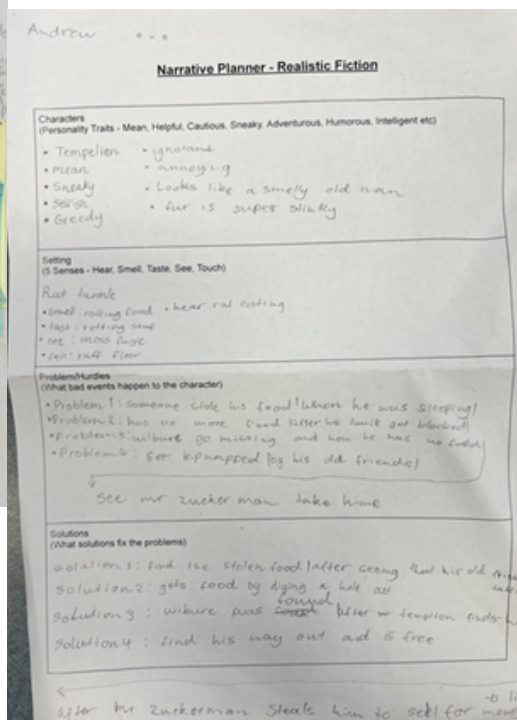 Andrew
Narrative Planner - Realistic Fiction
Characters
(Personality Traits - Mean, Helpful, Cautious, Sneaky, Adventurous, Humorous, Intelligent etc)
• Tempelten • ignorant
• mean • annoying
• Sneaky • Looks like a smelly old man
• Selish • fur is super stinky
• Greedy
Setting
(5 Senses - Hear, Smell, Taste, See, Touch)
Rat tunnle
• smell: rotting food • hear rat eating
• tast: rotting
• see: moss
• feel: ruff floor
Problem/Hurdles
(What bad events happen to the character)
• Problem 1: Someone stole his food! when he was sleeping!
• Problem 2: has no more food after his got blocked
• Problem 3: wilbure go missing and now he has no
• Problem 4: Get kipnapped by his old friends!
see mr zucker man take hime
Solutions
(What solutions fix the problems)
solution 1: find the stolen food after seeing that his old
solution 2: gets food by diging a hole
solution 3: wibure was found after templton finds
solution 4: find his way out ad is free
after mr zuckerman steals him to sell for